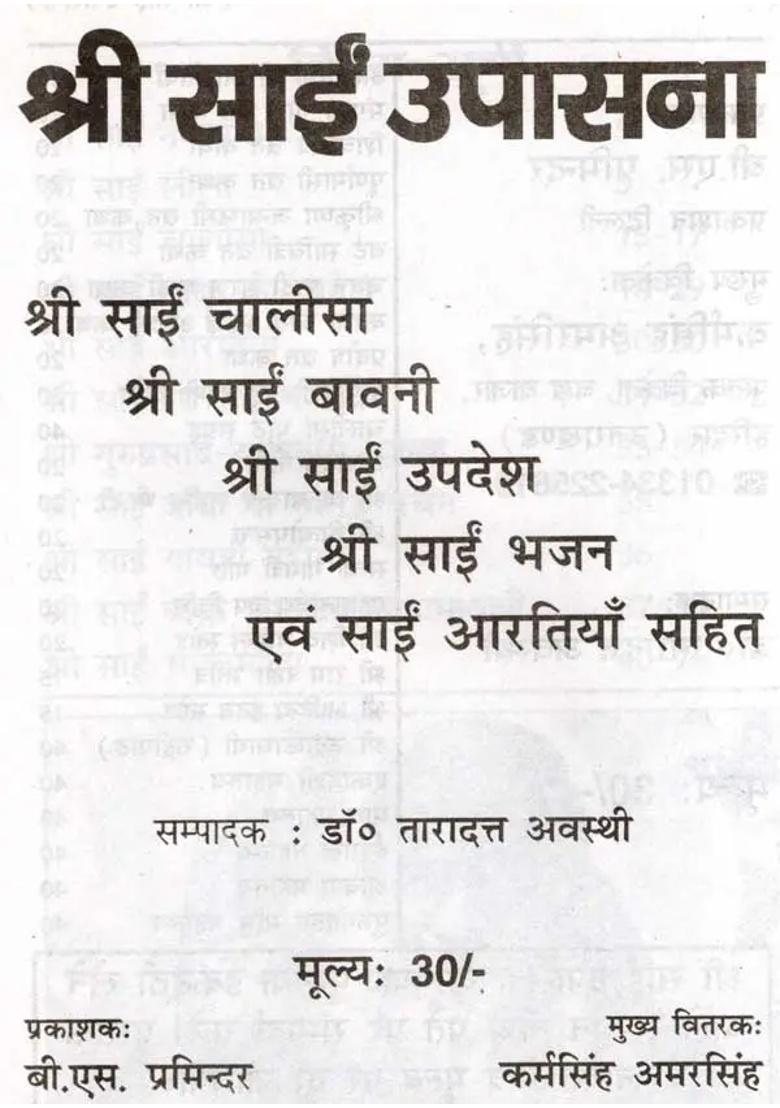 श्री साईं उपासना
श्री साईं चालीसा
श्री साईं बावनी
श्री साईं उपदेश
श्री साईं भजन
एवं साईं आरतियाँ सहित
सम्पादक : डॉ० तारादत्त अवस्थी
मूल्य: 30/-
प्रकाशक:
मुख्य वितरक:
बी.एस. प्रमिन्दर
कर्मसिंह अमरसिंह